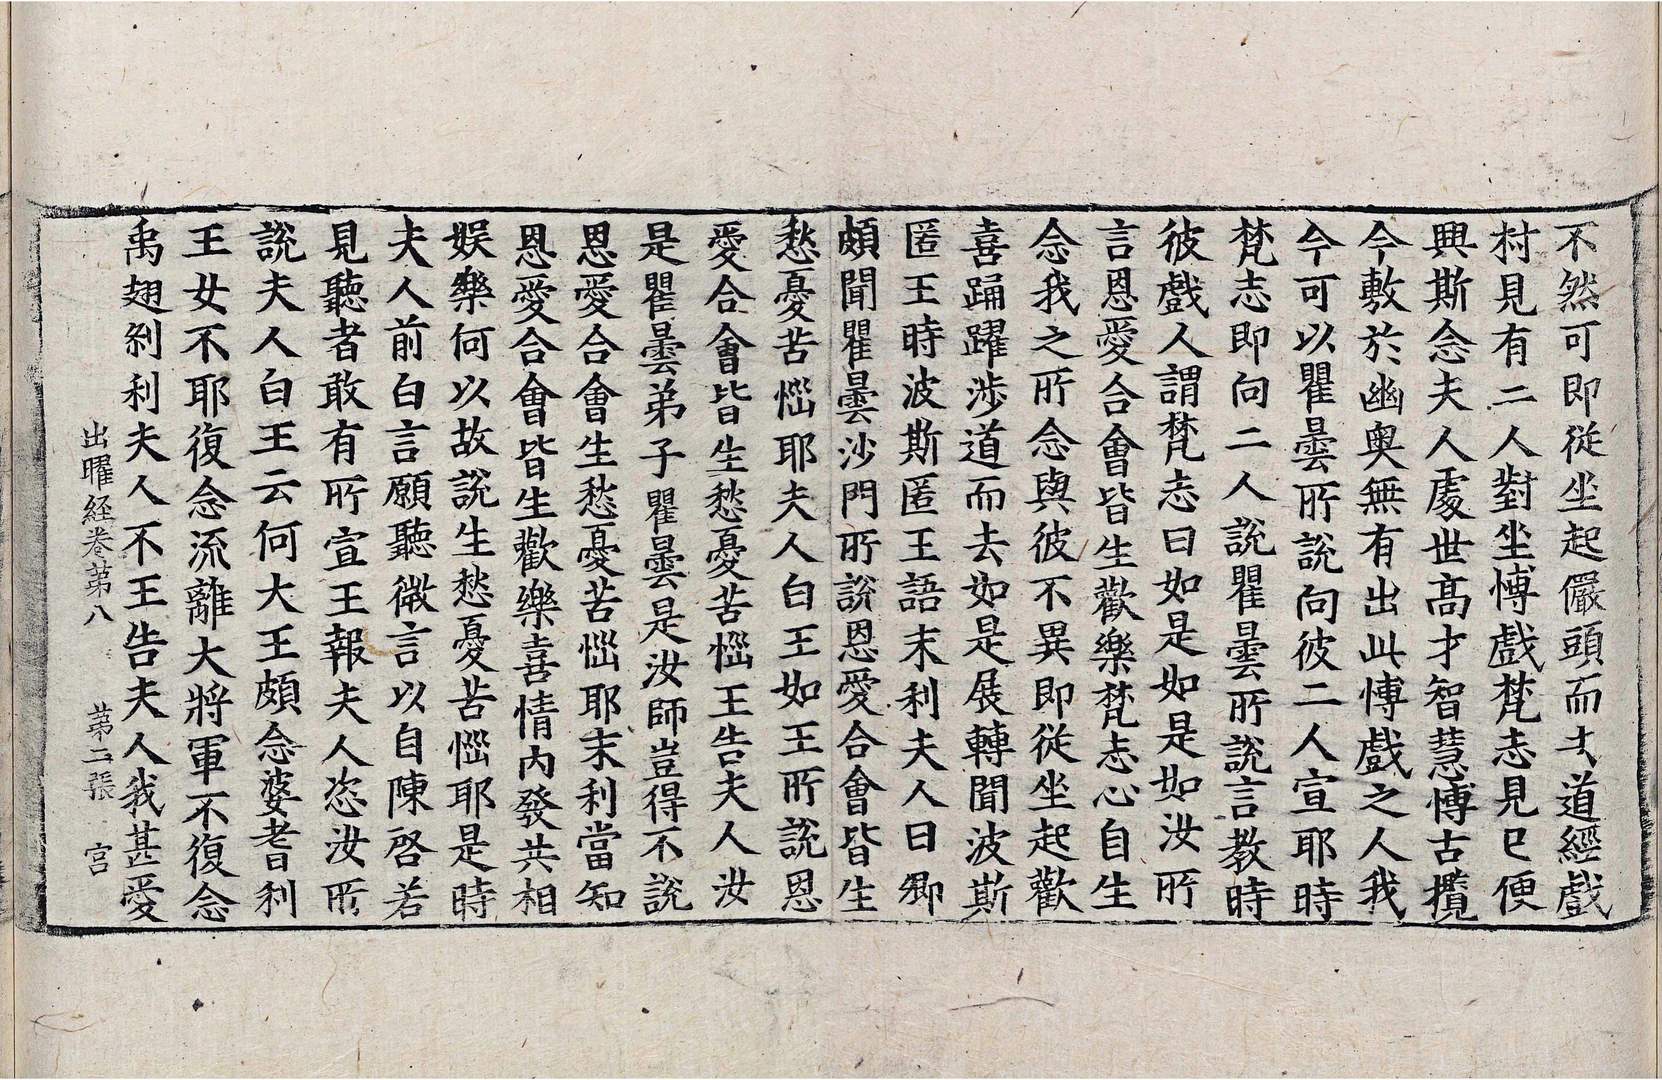 不然可即從坐起儼頭而去道經戲
村見有二人對坐愽戲梵志見已便
興斯念夫人處世髙才智慧愽古攬
今敷於幽奥無有出此愽戲之人我
今可以瞿曇所說向彼二人宣耶時
梵志即向二人說瞿曇所說言教時
彼戲人謂梵志曰如是如是如汝所
言恩愛合會皆生歡樂梵志心自生
念我之所念與彼不異即從坐起歡
喜踊躍渉道而去如是展轉聞波斯
匿王時波斯匿王語末利夫人曰卿
頗聞瞿曇沙門所說恩愛合會皆生
愁憂苦惱耶夫人白王如王所說恩
愛合會皆生愁憂苦惱王告夫人汝
是瞿曇弟子瞿曇是汝師豈得不說
恩愛合會生愁憂苦惱耶末利當知
恩愛合會皆生歡樂喜情内發共相
娱樂何以故說生愁憂苦惱耶是時
夫人前白言願聽微言以自陳啓若
見聽者敢有所宣王報夫人恣汝所
說夫人白王云何大王頗念婆耆利
王女不耶復念流離大將軍不復念
禹翅刹利夫人不王告夫人我甚愛
出曜経卷第八　第二張　宫